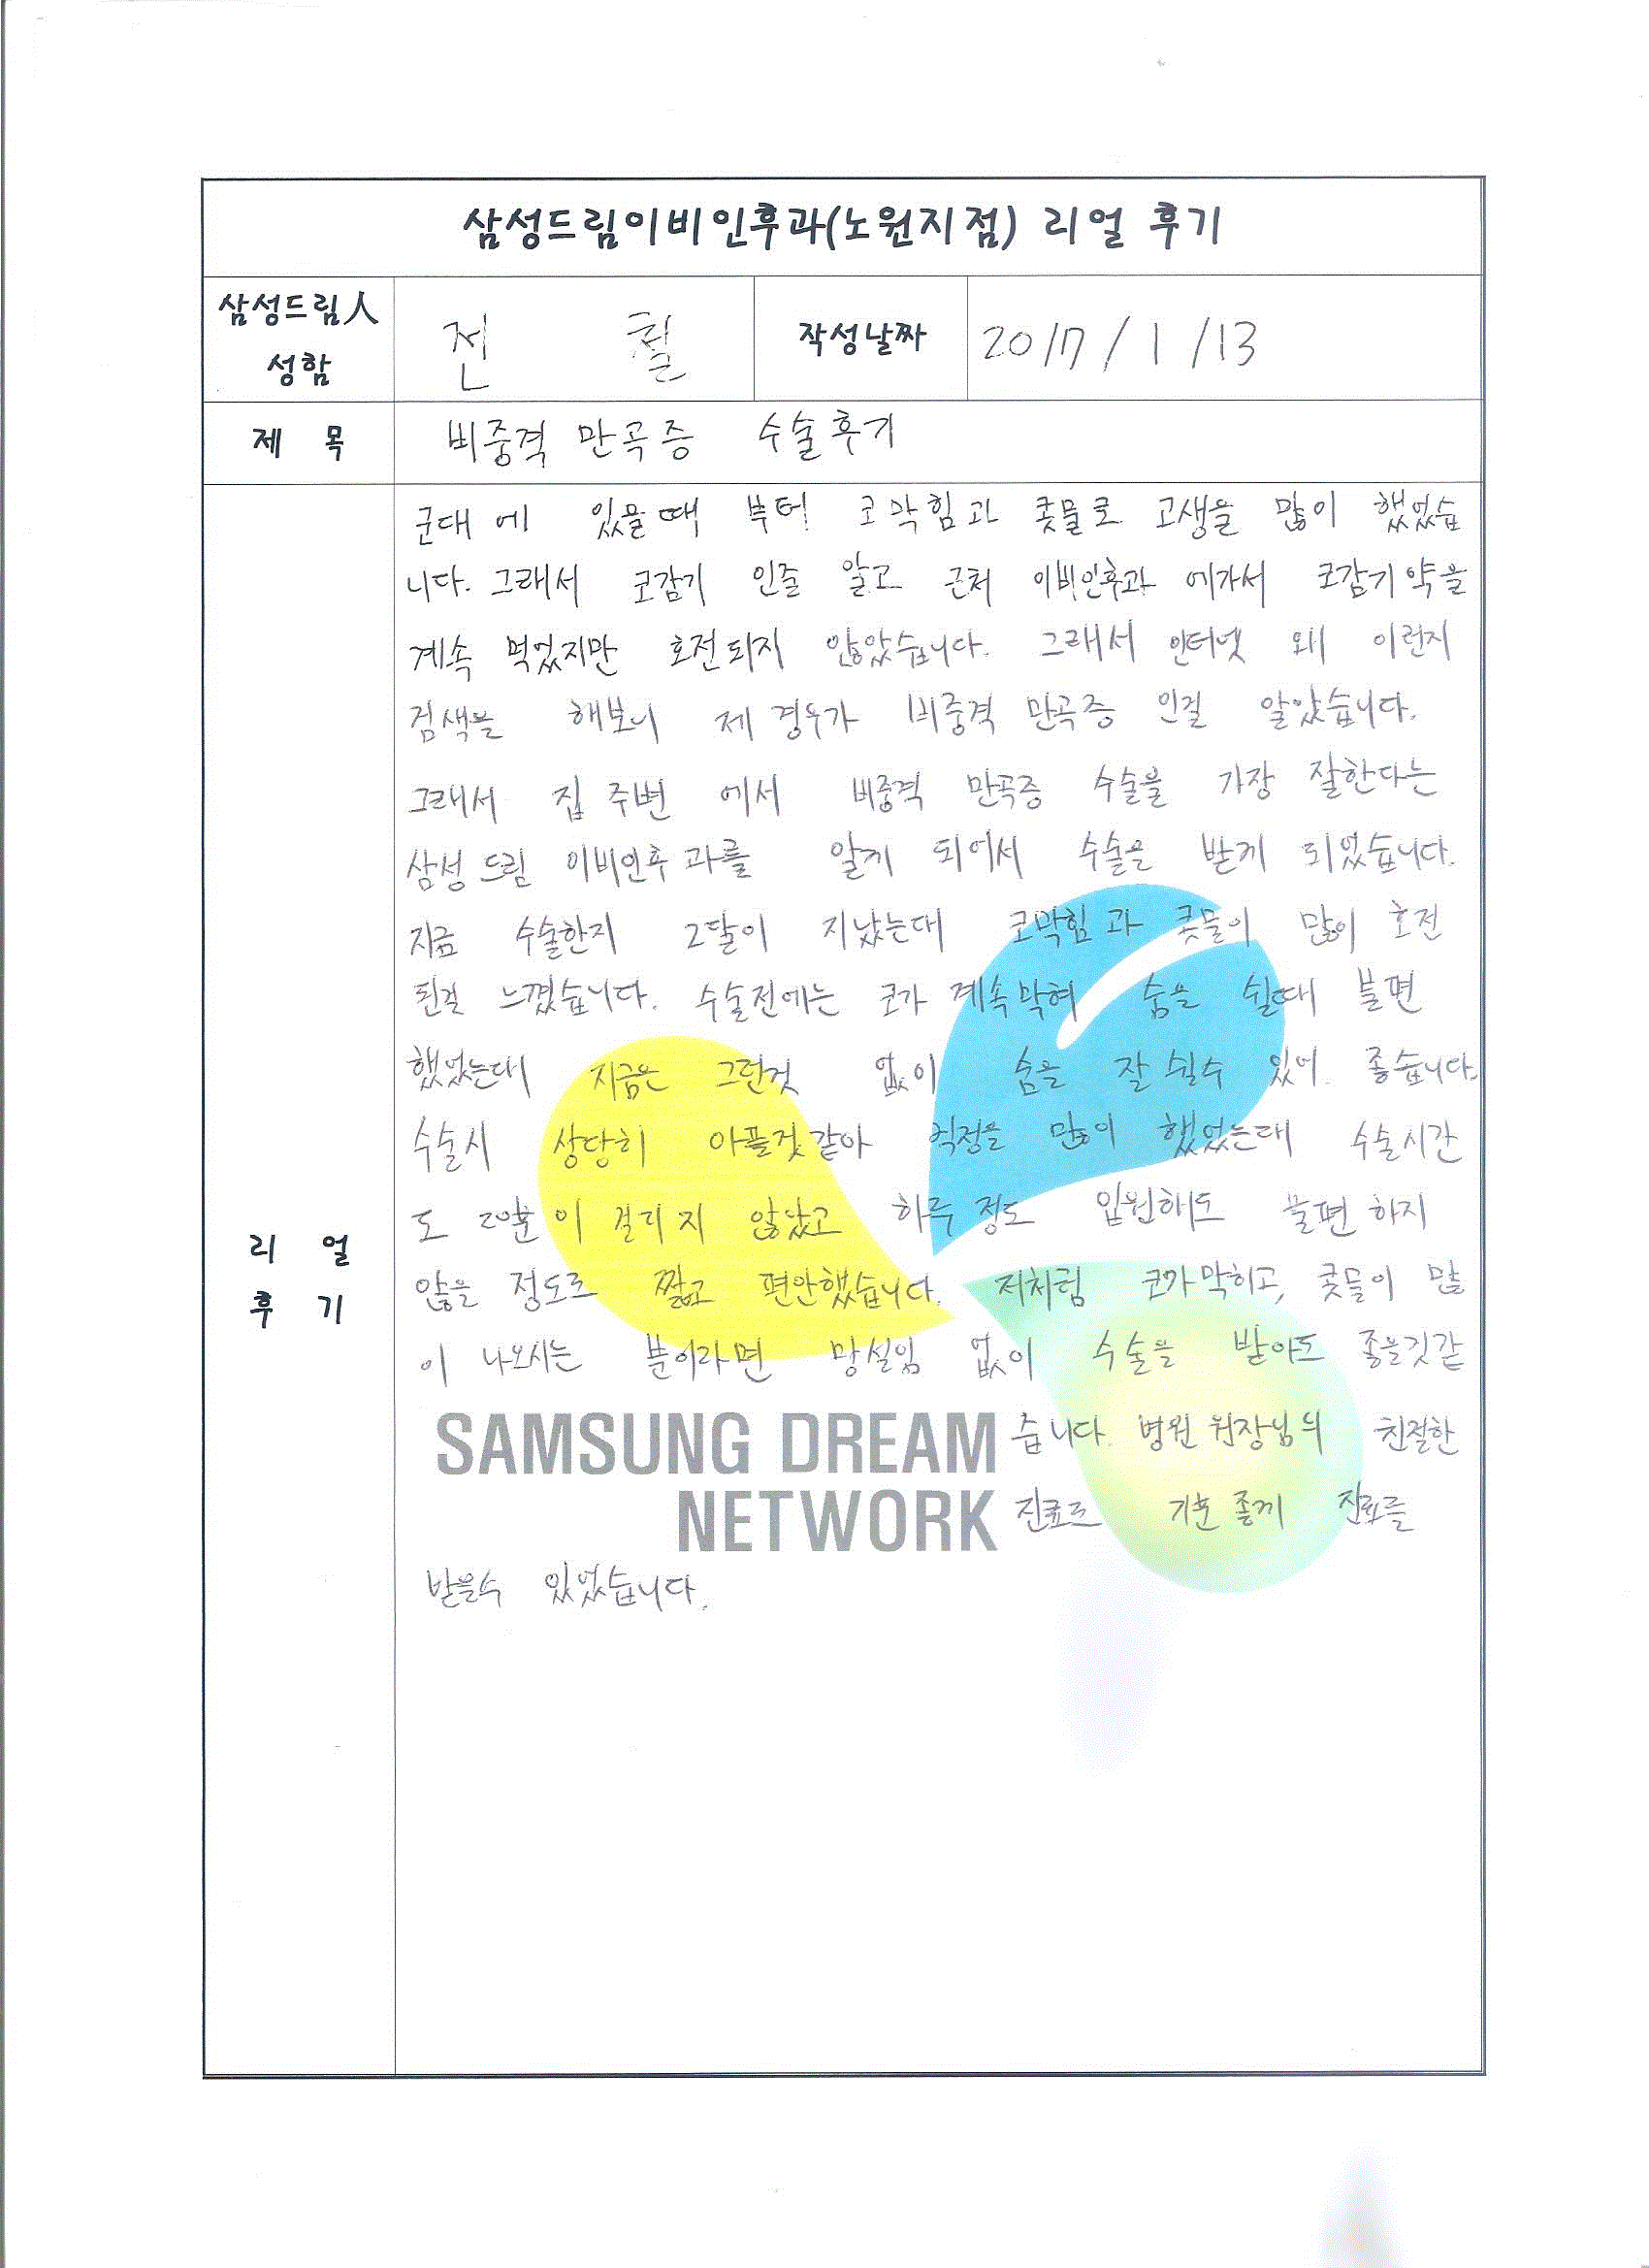 삼성드림이비인후과(노원지점) 리얼 후기
삼성드림人 성함
전 철
작성날짜
2017/1/13
제 목
비중격 만곡증 수술후기
리 얼
후 기
군대에 있을때 부터 코막힘과 콧물로 고생을 많이 했었습
니다. 그래서 코감기 인줄 알고 근처 이비인후과 에가서 코감기약을
계속 먹었지만 호전되지 않았습니다. 그래서 인터넷 왜 이런지
검색을 해보니 제 경우가 비중격 만곡증 인걸 알았습니다.
그래서 집 주변 에서 비중격 만곡증 수술을 가장 잘한다는
삼성드림 이비인후과를 알게 되어서 수술을 받게 되었습니다.
지금 수술한지 2달이 지났는대 코막힘과 콧물이 많이 호전
된걸 느꼈습니다. 수술전에는 코가 계속막혀 숨을 쉴때 불편
했었는대 지금은 그런것 없이 숨을 잘 쉴수 있어 좋습니다.
수술시 상당히 아플것같아 걱정을 많이 했었는대 수술시간
도 20분이 걸리지 않았고 하루정도 입원해도 불편하지
않을 정도로 짧고 편안했습니다. 저처럼 코가막히고, 콧물이 많
이 나오시는 분이라면 망설임 없이 수술을 받아도 좋을것같
습니다. 병원 원장님의 친절한
진료로 기분 좋게 진료를
받을수 있었습니다.
SAMSUNG DREAM
NETWORK